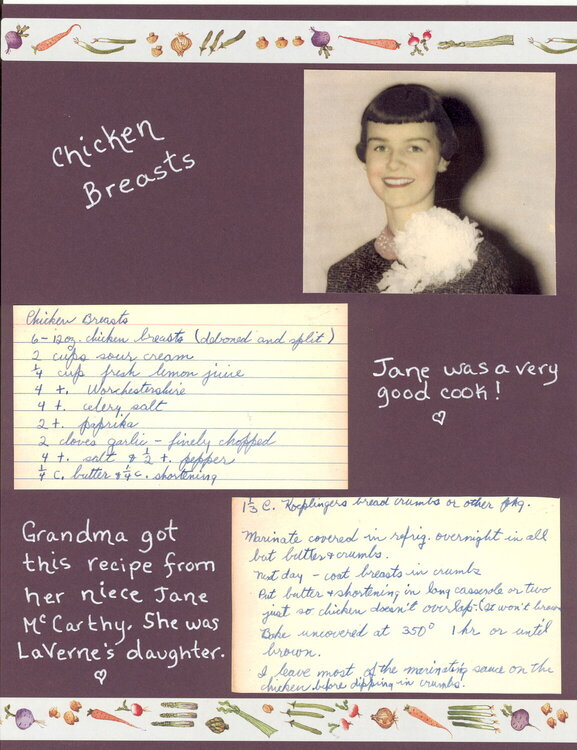 Chicken
Breasts
Chicken Breasts
6 - 12 oz. chicken breasts (deboned and split)
2 cups sour cream
1/4 cup fresh lemon juice
4 t. Worchestershire
4 t. celery salt
2 t. paprika
2 cloves garlic - finely chopped
4 t. salt & 1/2 t. pepper
1/4 c. butter & 1/4 c. shortening
Jane was a very
good cook!
1 1/3 C. Koeplingers bread crumbs or other pkg.
Marinate covered in refrig. overnight in all
but butter & crumbs.
Next day - coat breasts in crumbs
Put butter & shortening in long casserole or two
just so chicken doesn't overlap. (it won't brown
Bake uncovered at 350° 1 hr or until
brown.
I leave most of the marinating sauce on the
chicken before dipping in crumbs.
Grandma got
this recipe from
her niece Jane
McCarthy. She was
LaVerne's daughter.